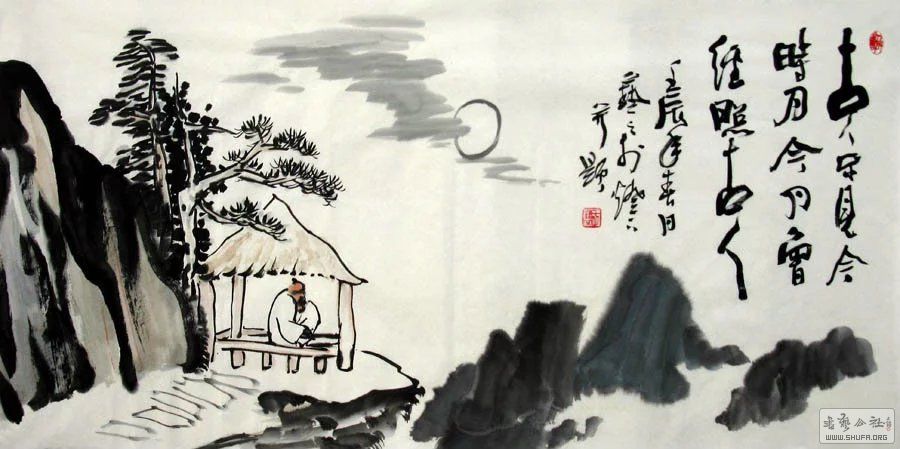 古人不見今
時月今月曾
經照古人
壬辰年春月
并題
書藝公社
WWW.SHUFA.ORG